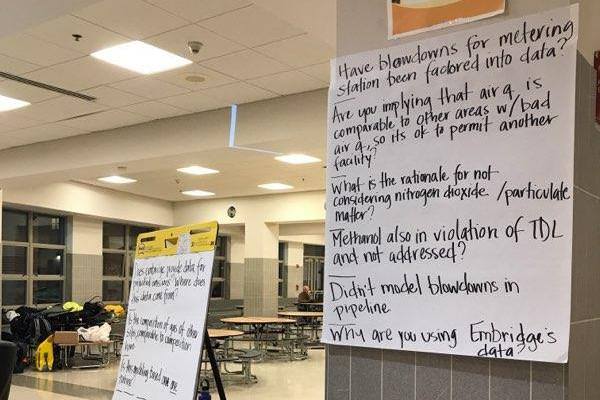 Have blowdowns for metering
station been factored into data?
Are you implying that air q is
comparable to other areas w/ bad
air q, so its ok to permit another
facility?
What is the rationale for not
considering nitrogen dioxide /particulate
matter?
Methanol also in violation of TDL
and not addressed?
Didn't model blowdowns in
pipeline
Why are you using Embridge's
data?
Does provide data for
Where does
this data come from?
Is the composition of gas at other
sites comparable to compressor
Is this modeling based on